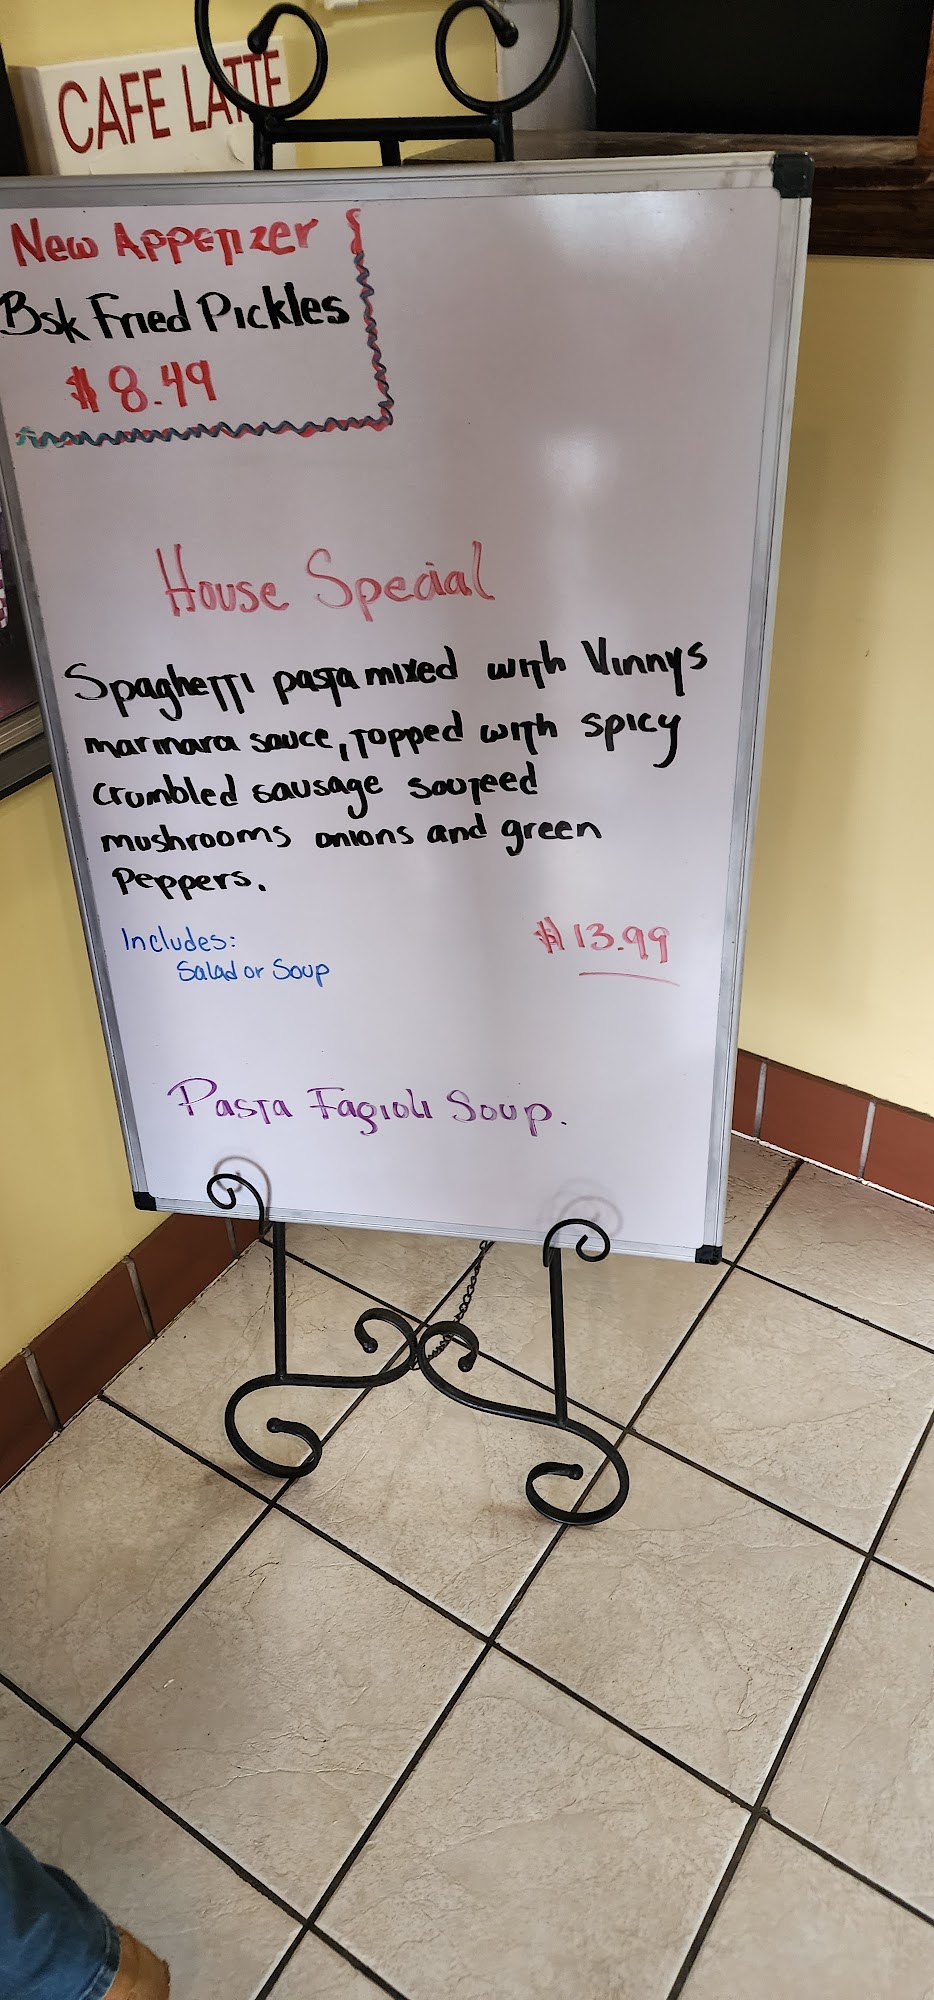 CAFE LATTE
New Appetizer
Bsk Fried Pickles
$8.49
House Special
Spaghetti pasta mixed with Vinnys
marinara sauce, topped with spicy
crumbled sausage sauteed
mushrooms onions and green
Peppers.
Includes:
Salad or Soup
$13.99
Pasta Fagioli Soup.